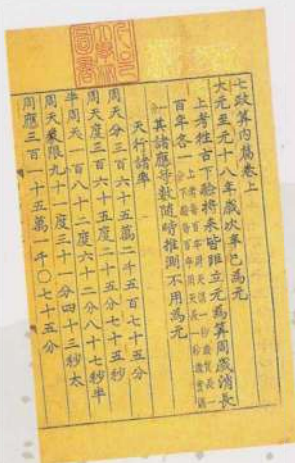 七政算內篇卷上
大元至元十八年歲次辛巳為元
上考往古下驗將來皆距立元為算周歲消長
百年各一上考每百年周天消一秒歲實長一
下驗每百年周天長一秒歲實消一
其諸應等數隨時推測不用為元
天行諸率
周天分三百六十五萬二千五百七十五分
周天度三百六十五度二十五分七十五秒
半周天一百八十二度六十二分八十七秒半
周天象限九十一度三十一分四十三秒太
周應三百一十五萬一千〇七十五分